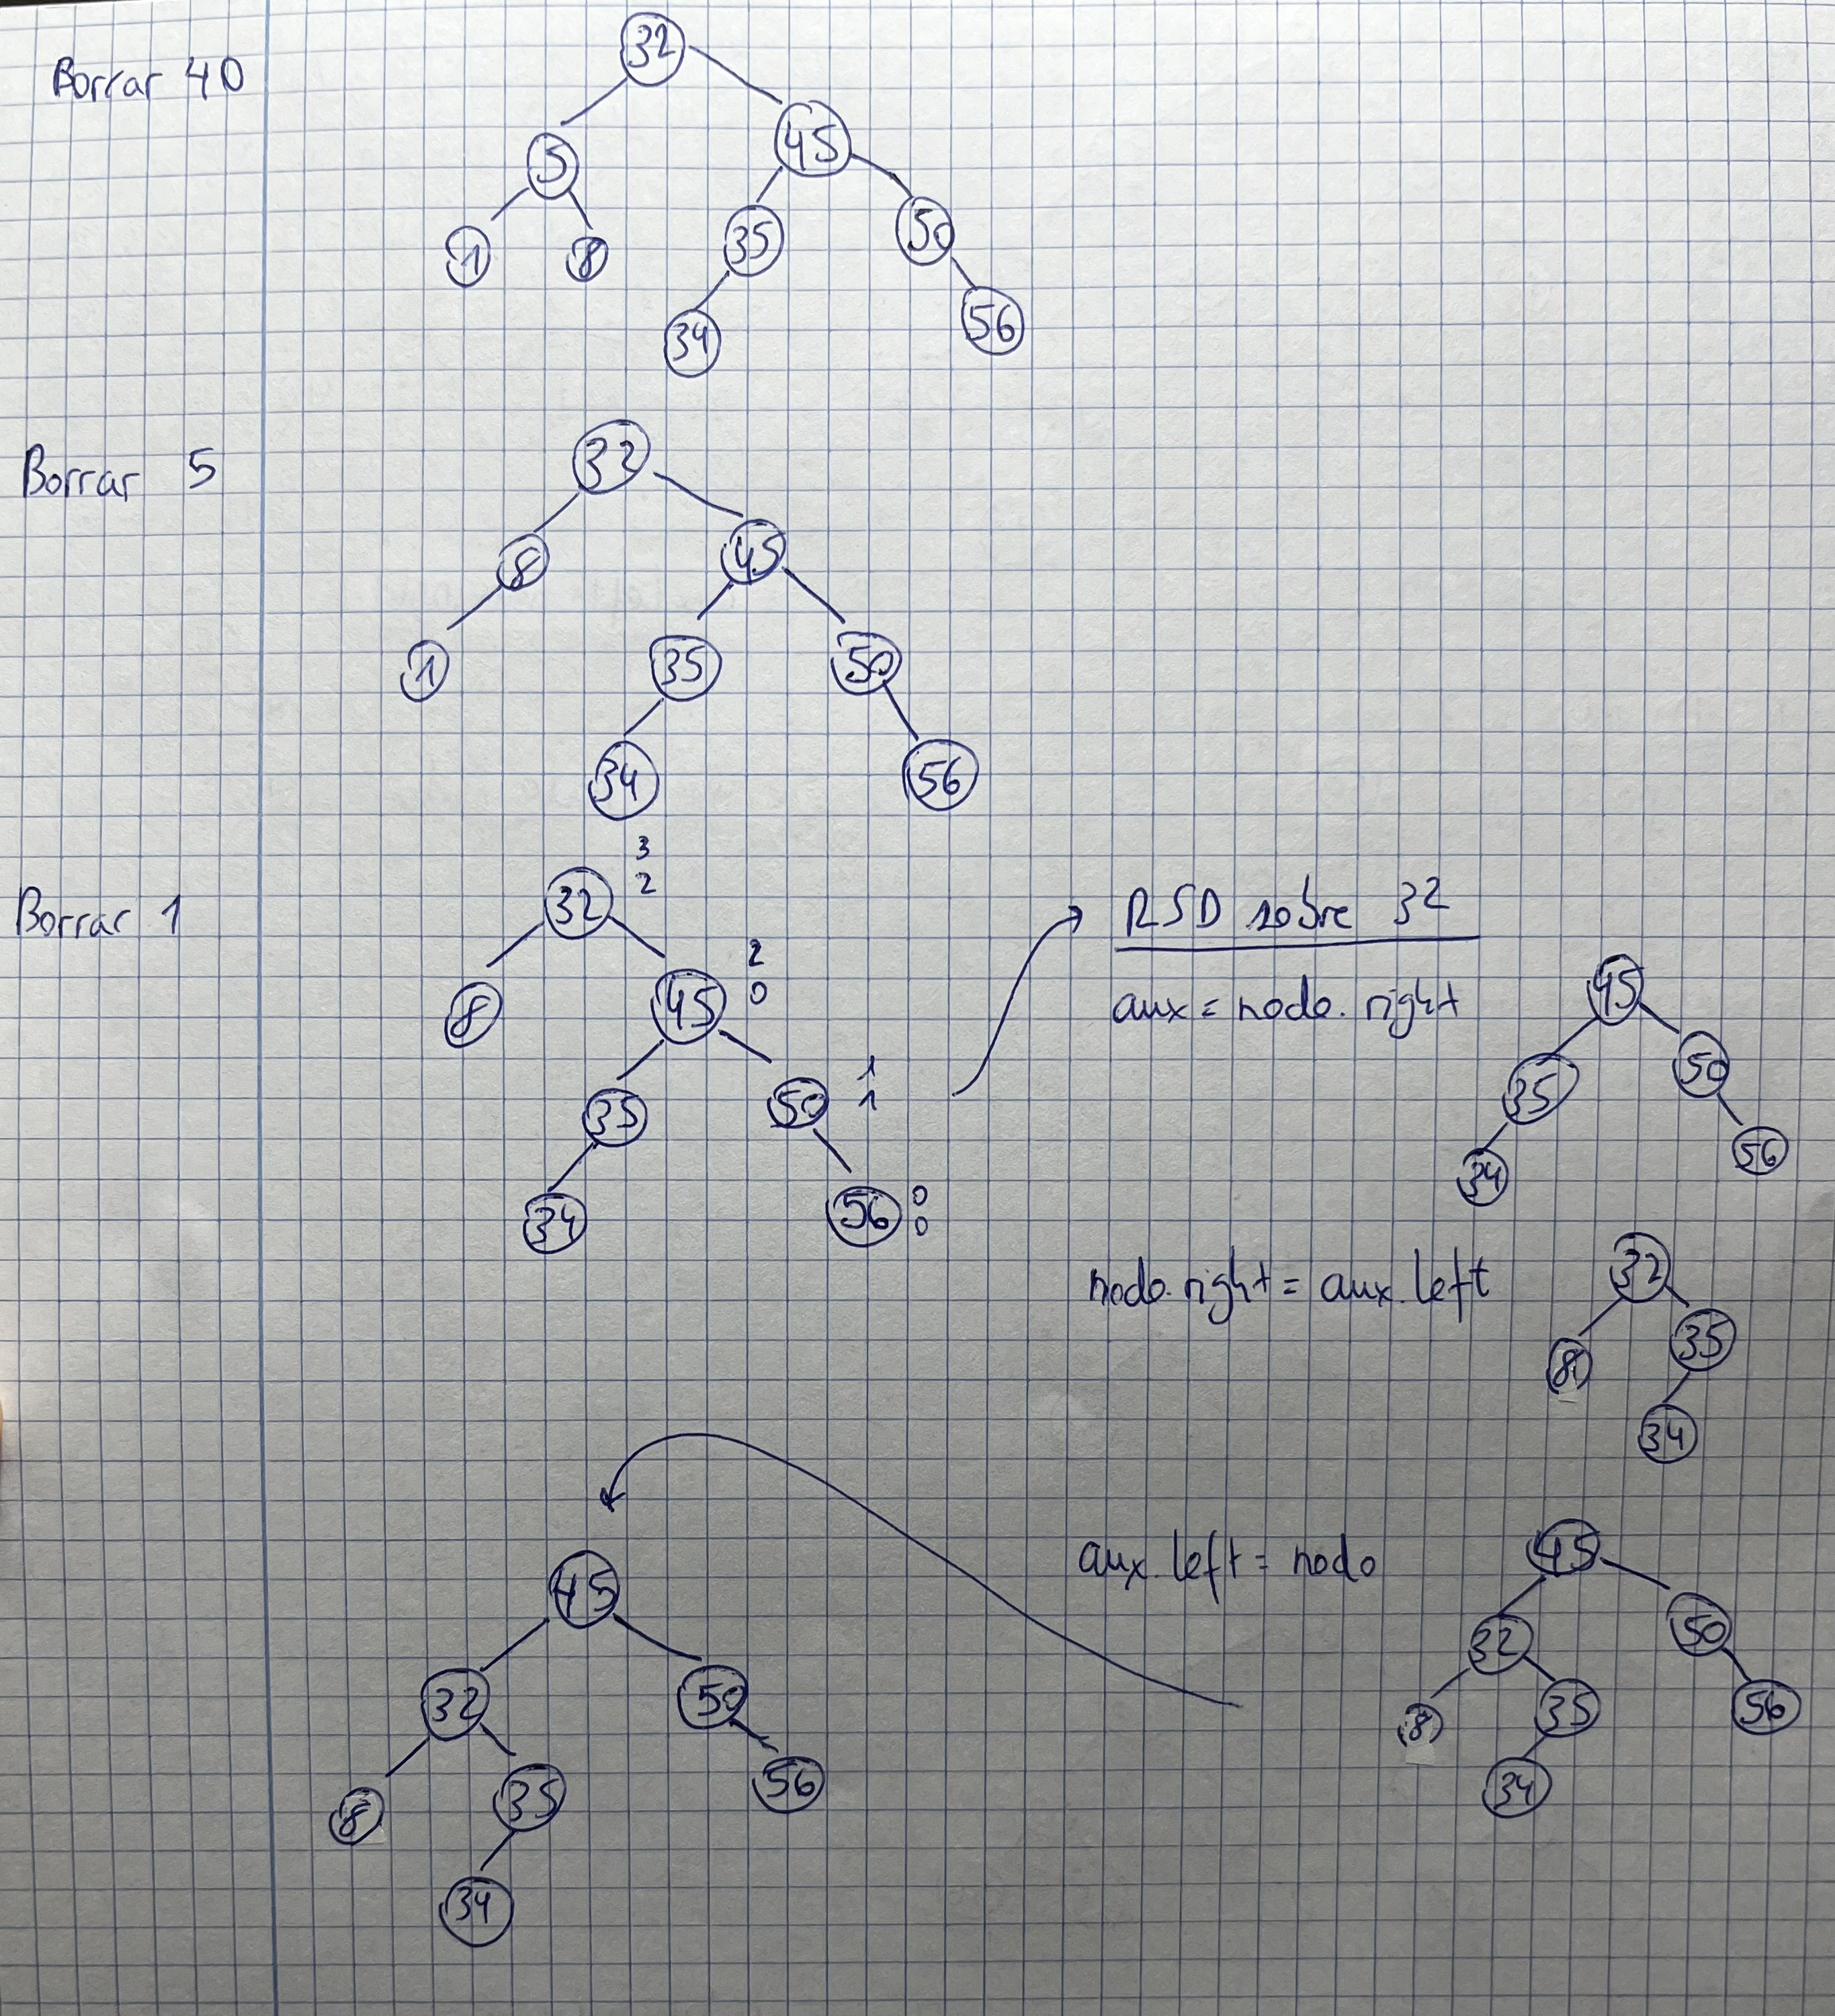 32
Borrar 40
5 45
1 8 35 50
34 56
32
Borrar 5
8 45
1 35 50
34 56
3
32 2
Borrar 1
8 45
2
0
35 50
1
1
34 56
0
0
RSD sobre 32
aux = nodo.right
45
35 50
34 56
nodo.right = aux.left
32
8 35
34
aux.left = nodo
45
32 50
8 35 56
34
45
32 50
8 35 56
34